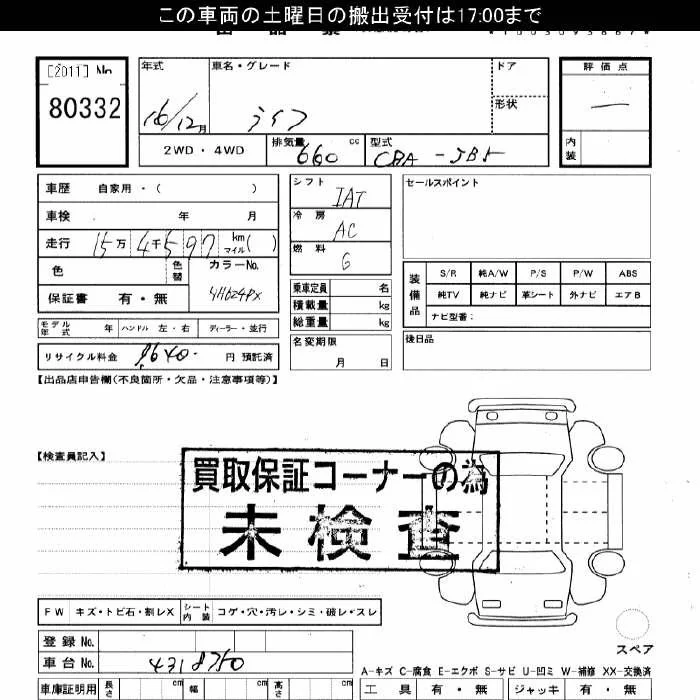 この車両の土曜日の搬出受付は17:00まで
[2011] No
80332
年式 車名・グレード ドア 評価点
16/12月 ライフ 形状 —
2WD・4WD 排気量 660 cc 型式 CBA-JB5 内装
車歴 自家用・( )
車検 年 月
走行 15万4千597 km マイル( )
色 色替 カラーNo.
保証書 有・無 YH624PX
モデル年式 年 ハンドル 左・右 ディーラー・並行
リサイクル料金 9640 円 預託済
シフト IAT
冷房 AC
燃料 G
乗車定員 名
積載量 kg
総重量 kg
名変期限 月 日
セールスポイント
装備品 S/R 純A/W P/S P/W ABS
純TV 純ナビ 革シート 外ナビ エアB
ナビ型番:
後日品
【出品店申告欄(不良箇所・欠品・注意事項等)】
【検査員記入】
買取保証コーナーの為
未検査
FW キズ・トビ石・割レX シート内装 コゲ・穴・汚レ・シミ・破レ・スレ
登録No.
車台No. 4318750
スペア
A-キズ C-腐食 E-エクボ S-サビ U-凹ミ W-補修 XX-交換済
車庫証明用 長さ cm 幅 cm 高さ cm 工具 有・無 ジャッキ 有・無